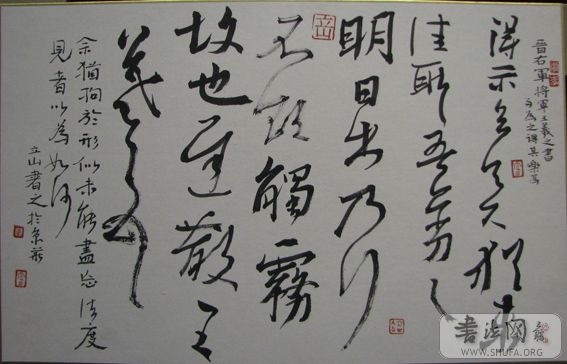 晉右軍將軍王羲之書
得示知足下猶未
佳耿耿吾亦劣劣
明日出乃行
不欲觸霧
故也遲散王
羲之頓首
余猶拘於形似未能盡忘法度
見者以為如何
立山書之於京
立山
書法网
WWW.SHUFA.ORG